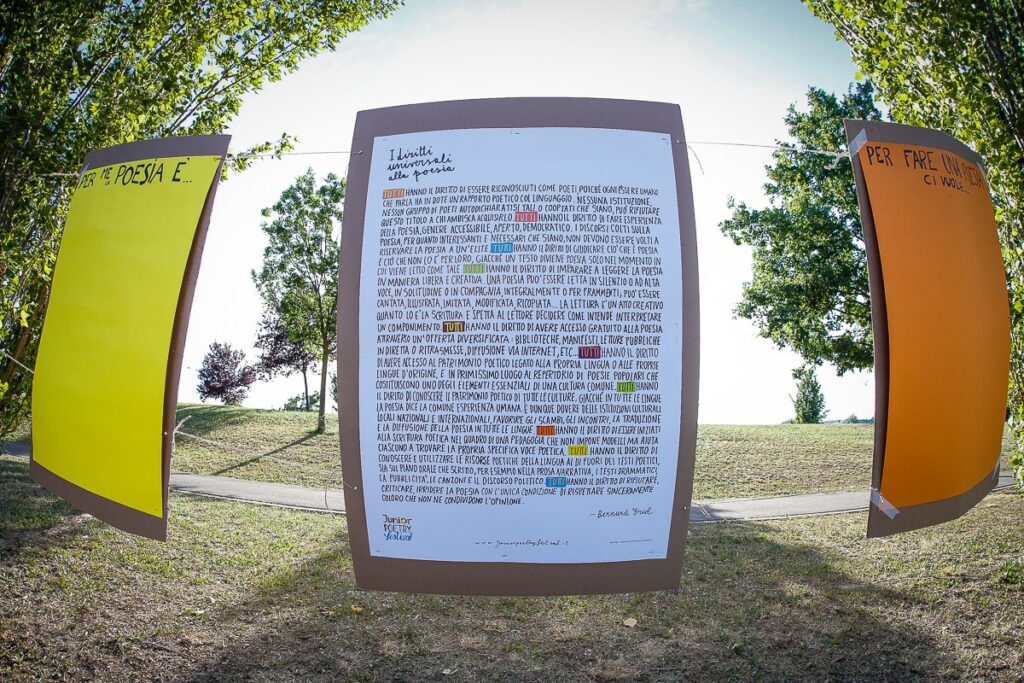 PER ME LA POESIA È...
I diritti
universali
alla poesia
TUTTI HANNO IL DIRITTO DI ESSERE RICONOSCIUTI COME POETI, POICHÉ OGNI ESSERE UMANO
CHE PARLA HA IN DOTE UN RAPPORTO POETICO COL LINGUAGGIO. NESSUNA ISTITUZIONE,
NESSUN GRUPPO DI POETI AUTODICHIARATISI TALI O COOPTATI CHE SIANO, PUÒ RIFIUTARE
QUESTO TITOLO A CHI AMBISCA ACQUISIRLO. TUTTI HANNO IL DIRITTO DI FARE ESPERIENZA
DELLA POESIA, GENERE ACCESSIBILE, APERTO, DEMOCRATICO. I DISCORSI COLTI SULLA
POESIA, PER QUANTO INTERESSANTI E NECESSARI CHE SIANO, NON DEVONO ESSERE VOLTI A
RISERVARE LA POESIA A UN'ELITE. TUTTI HANNO IL DIRITTO DI GIUDICARE CIÒ CHE È POESIA
E CIÒ CHE NON LO È PER LORO, GIACCHÉ UN TESTO DIVIENE POESIA SOLO NEL MOMENTO IN
CUI VIENE LETTO COME TALE. TUTTI HANNO IL DIRITTO DI IMPARARE A LEGGERE LA POESIA
IN MANIERA LIBERA E CREATIVA. UNA POESIA PUÒ ESSERE LETTA IN SILENZIO O AD ALTA
VOCE, IN SOLITUDINE O IN COMPAGNIA, INTEGRALMENTE O PER FRAMMENTI; PUÒ ESSERE
CANTATA, ILLUSTRATA, IMITATA, MODIFICATA, RICOPIATA... LA LETTURA È UN ATTO CREATIVO
QUANTO LO È LA SCRITTURA E SPETTA AL LETTORE DECIDERE COME INTENDE INTERPRETARE
UN COMPONIMENTO. TUTTI HANNO IL DIRITTO DI AVERE ACCESSO GRATUITO ALLA POESIA
ATTRAVERSO UN'OFFERTA DIVERSIFICATA: BIBLIOTECHE, MANIFESTI, LETTURE PUBBLICHE
IN DIRETTA O RITRASMESSE, DIFFUSIONE VIA INTERNET, ETC... TUTTI HANNO IL DIRITTO
DI AVERE ACCESSO AL PATRIMONIO POETICO LEGATO ALLA PROPRIA LINGUA O ALLE PROPRIE
LINGUE D'ORIGINE, E IN PRIMISSIMO LUOGO AL REPERTORIO DI POESIE POPOLARI CHE
COSTITUISCONO UNO DEGLI ELEMENTI ESSENZIALI DI UNA CULTURA COMUNE. TUTTI HANNO
IL DIRITTO DI CONOSCERE IL PATRIMONIO POETICO DI TUTTE LE CULTURE. GIACCHÉ IN TUTTE LE LINGUE
LA POESIA DICE LA COMUNE ESPERIENZA UMANA. È DUNQUE DOVERE DELLE ISTITUZIONI CULTURALI
LOCALI NAZIONALI E INTERNAZIONALI, FAVORIRE GLI SCAMBI, GLI INCONTRI, LA TRADUZIONE
E LA DIFFUSIONE DELLA POESIA IN TUTTE LE LINGUE. TUTTI HANNO IL DIRITTO DI ESSERE INIZIATI
ALLA SCRITTURA POETICA NEL QUADRO DI UNA PEDAGOGIA CHE NON IMPONE MODELLI MA AIUTA
CIASCUNO A TROVARE LA PROPRIA SPECIFICA VOCE POETICA. TUTTI HANNO IL DIRITTO DI
CONOSCERE E UTILIZZARE LE RISORSE POETICHE DELLA LINGUA AL DI FUORI DEI TESTI POETICI,
SIA SUL PIANO ORALE CHE SCRITTO, PER ESEMPIO NELLA PROSA NARRATIVA, I TESTI DRAMMATICI,
LA PUBBLICITÀ, LE CANZONI E IL DISCORSO POLITICO. TUTTI HANNO IL DIRITTO DI RIFIUTARE,
CRITICARE, IRRIDERE LA POESIA CON L'UNICA CONDIZIONE DI RISPETTARE SINCERAMENTE
COLORO CHE NE CONDIVIDONO L'OPINIONE.
— Bernard Friot
Junior
POETRY
festival
www.juniorpoetryfestival.it
PER FARE UNA POESIA
CI VUOLE...